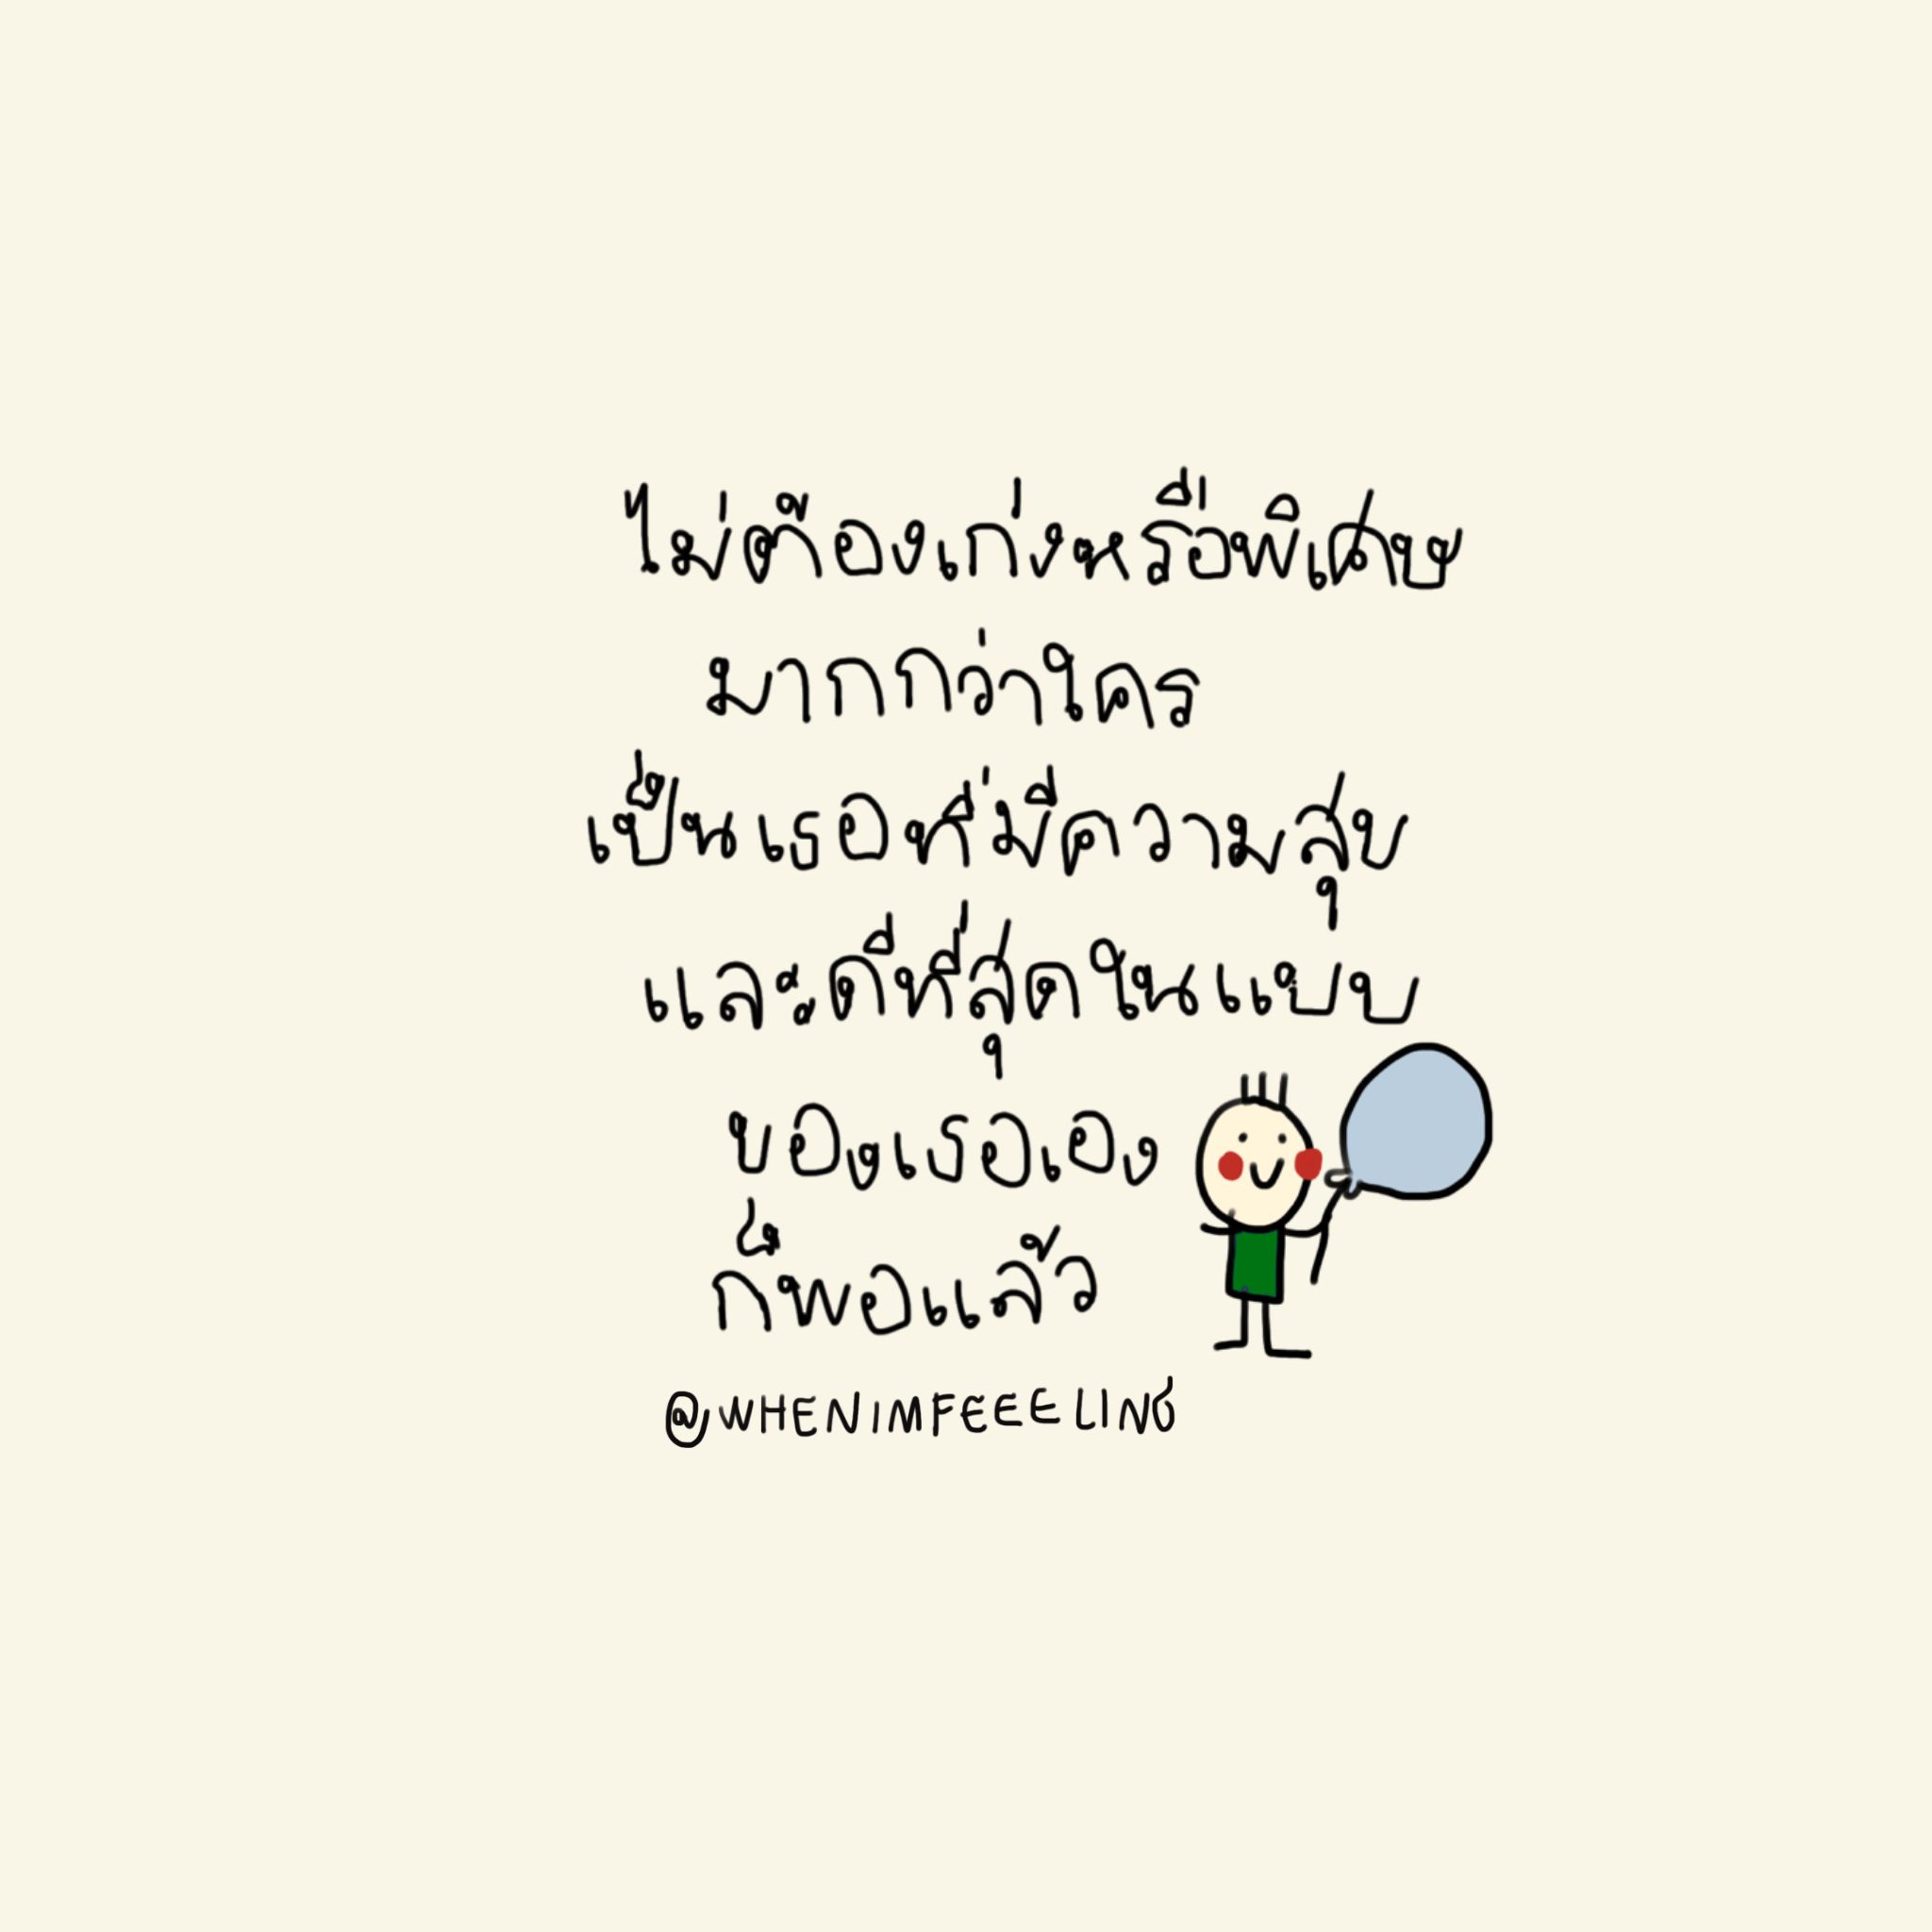 ไม่ต้องเก่งหรือพิเศษ
มากกว่าใคร
เป็นเธอที่มีความสุข
และดีที่สุดในแบบ
ของเธอเอง
ก็พอแล้ว
@WHENIMFEEELING